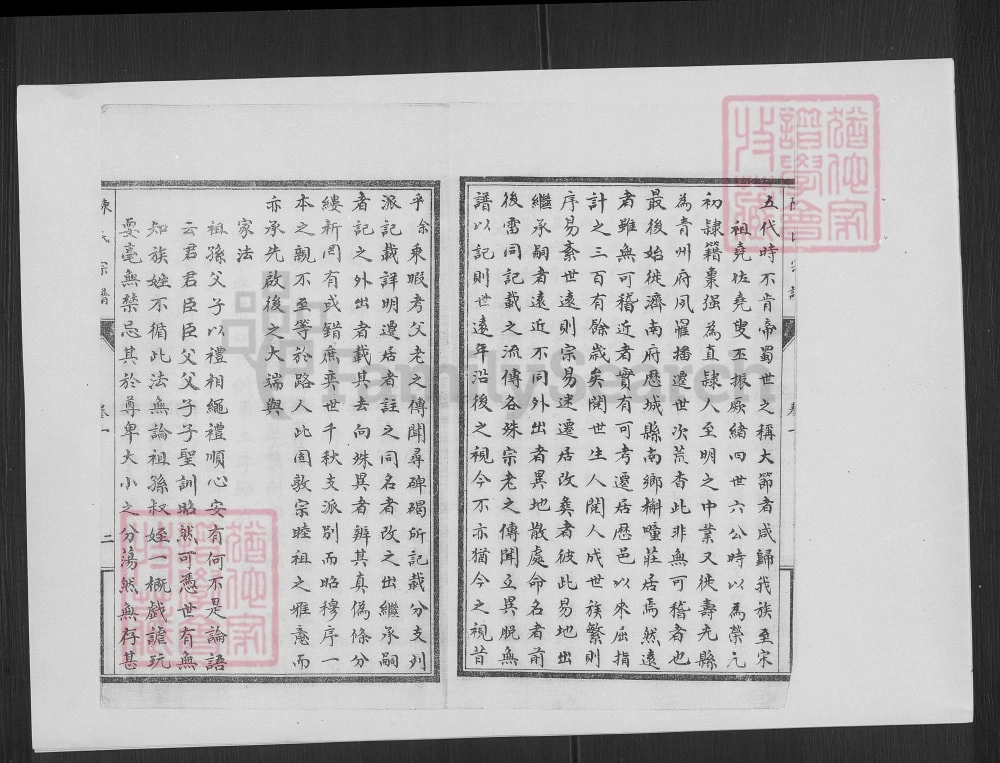 五代時不肯帝蜀世之稱大節者咸歸我族至宋
祖堯佐堯叟丕振厥緒四世六公時以為榮元
初隸籍棗强為直隸人至明之中業又徙壽光縣
為青州府夙罹播遷世次荒杳此非無可稽者也
最後始徙濟南府歷城縣南鄉槲疃莊居焉然遠
者雖無可稽近者實有可考遷居歷邑以來屈指
計之三百有餘歲矣閱世生人閱人成世族繁則
序易紊世遠則宗易迷遷居改彜者彼此易地出
繼承嗣者遠近不同外出者異地散處命名者前
後雷同記載之流傳各殊宗老之傳聞立異脱無
譜以記則世遠年沿後之視今不亦猶今之視昔
乎余東暇考父老之傳聞尋碑碣所記載分支列
派記載詳明遷居者註之同名者改之出繼承嗣
者記之外出者載其去向殊異者辨其真偽條分
縷新罔有或錯庶奕世千秋支派別而昭穆序一
本之親不至等於路人此固敦宗睦祖之雅意而
亦承先啟後之大端與
家法
祖孫父子以禮相繩禮順心安有何不是論語
云君君臣臣父父子子聖訓昭然可憑世有無
知族姓不循此法無論祖孫叔姪一概戲謔玩
耍毫無禁忌其於尊卑大小之分蕩然無存甚
陳氏宗譜
卷一
二
FamilySearch